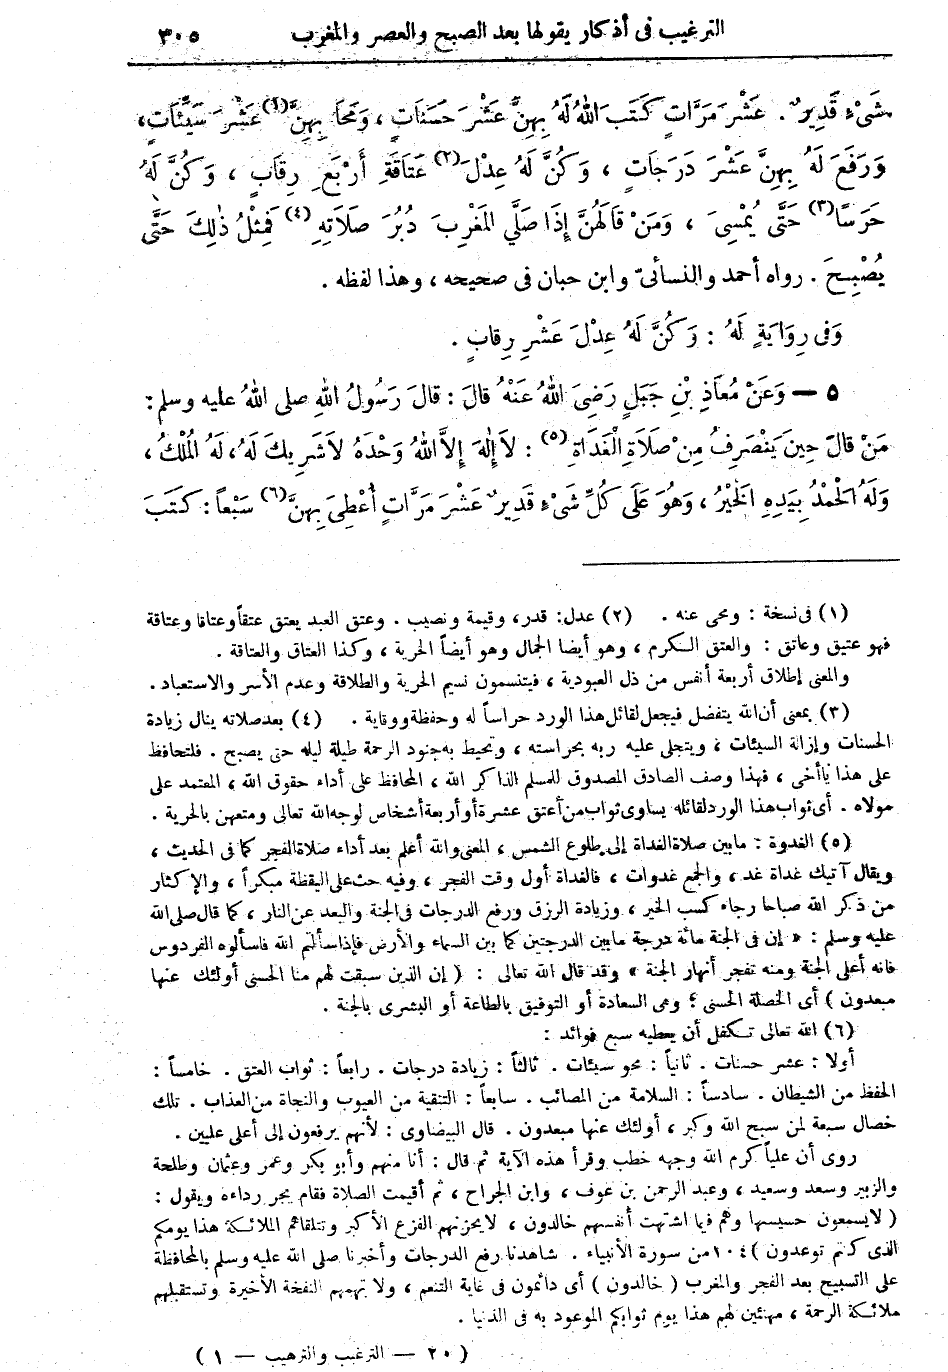 الترغيب فى أذكار يقولها بعد الصبح والعصر والمغرب ٣٠٥
شَىْءٍ قَدِيرٌ . عَشْرَ مَرَّاتٍ كَتَبَ اللهُ لَهُ بِهِنَّ عَشْرَ حَسَنَاتٍ ، وَمَحَا بِهِنَّ(١) عَشْرَ سَيِّئَاتٍ ،
وَرَفَعَ لَهُ بِهِنَّ عَشْرَ دَرَجَاتٍ ، وَكُنَّ لَهُ عِدْلَ(٢) عَتَاقَةِ أَرْبَعِ رِقَابٍ ، وَكُنَّ لَهُ
حَرَسًا(٣) حَتَّى يُمْسِىَ ، وَمَنْ قَالَهُنَّ إِذَا صَلَّي المَغْرِبَ دُبُرَ صَلَاتِهِ(٤) فَمِثْلُ ذٰلِكَ حَتَّى
يُصْبِحَ . رواه أحمد والنسأئىّ وابن حبان فى صحيحه ، وهذا لفظه .
وَفى رِوَايَةٍ لَهُ : وَكُنَّ لَهُ عِدْلَ عَشْرِ رِقَابٍ .
٥ — وَعَنْ مُعَاذِ بْنِ جَبَلٍ رَضِىَ اللهُ عَنْهُ قَالَ : قَالَ رَسُولُ اللهِ صلى اللهُ عليه وسلم :
مَنْ قَالَ حِينَ يَنْصَرِفُ مِنْ صَلَاةِ الْغَدَاةِ(٥) : لاَ إِلٰهَ إِلاَّ اللهُ وَحْدَهُ لاَشَرِيكَ لَهُ ، لَهُ الْمُلْكُ ،
وَلَهُ الْحَمْدُ بِيَدِهِ الْخَيْرُ ، وَهُوَ عَلَى كُلِّ شَىْءٍ قَدِيرٌ عَشْرَ مَرَّاتٍ أُعْطِىَ بِهِنَّ(٦) سَبْعاً : كَتَبَ
(١) فى نسخة : ومحى عنه . (٢) عدل: قدر، وقيمة ونصيب . وعتق العبد يعتق عتقاً وعتاقا وعتاقة
فهو عتيق وعاتق : والعتق الكرم ، وهو أيضا الجمال وهو أيضاً الحرية ، وكذا العتاق والعتاقة .
والمعنى إطلاق أربعة أنفس من ذل العبودية ، فيتنسمون نسيم الحرية والطلاقة وعدم الأسر والاستعباد .
(٣) بمعنى أن الله يتفضل فيجعل لقائل هذا الورد حراساً له وحفظة ووقاية . (٤) بعد صلاته ينال زيادة
الحسنات وإزالة السيئات ، ويتجلى عليه ربه بحراسته ، وتحيط به جنود الرحمة طيلة ليله حتى يصبح . فلتحافظ
على هذا يا أخى ، فهذا وصف الصادق المصدوق للمسلم الذاكر الله ، المحافظ على أداء حقوق الله ، المعتمد على
مولاه . أى ثواب هذا الورد لقائله يساوى ثواب من أعتق عشرة أو أربعة أشخاص لوجه الله تعالى ومتعهن بالحرية .
(٥) الغدوة : مابين صلاة الغداة إلى طلوع الشمس ، المعنى والله أعلم بعد أداء صلاة الفجر كما فى الحديث ،
ويقال آتيك غداة غد ، والجمع غدوات ، فالغداة أول وقت الفجر ، وفيه حث على اليقظة مبكراً ، والإكثار
من ذكر الله صباحا رجاء كسب الخير ، وزيادة الرزق ورفع الدرجات فى الجنة والبعد عن النار ، كما قال صلى الله
عليه وسلم : « إن فى الجنة مائة درجة مابين الدرجتين كما بين السماء والأرض فإذا سألتم الله فاسألوه الفردوس
فانه أعلى الجنة ومنه تفجر أنهار الجنة » وقد قال الله تعالى : ( إن الذين سبقت لهم منا الحسنى أولئك عنها
مبعدون ) أى الخصلة الحسنى ؛ وهى السعادة أو التوفيق بالطاعة أو البشرى بالجنة .
(٦) الله تعالى تكفل أن يعطيه سبع فوائد :
أولا : عشر حسنات . ثانياً : محو سيئات . ثالثاً : زيادة درجات . رابعاً : ثواب العتق . خامساً :
الحفظ من الشيطان . سادساً : السلامة من المصائب . سابعاً : التنقية من العيوب والنجاة من العذاب . تلك
خصال سبعة لمن سبح الله وكبر ، أولئك عنها مبعدون . قال البيضاوى : لأنهم يرفعون إلى أعلى عليين .
روى أن علياً كرم الله وجهه خطب وقرأ هذه الآية ثم قال : أنا منهم وأبو بكر وعمر وعثمان وطلحة
والزبير وسعد وسعيد ، وعبد الرحمن بن عوف ، وابن الجراح ، ثم أقيمت الصلاة فقام يجر رداءه ويقول :
( لايسمعون حسيسها وهم فيما اشتهت أنفسهم خالدون ، لايحزنهم الفزع الأكبر وتتلقاهم الملائكة هذا يومكم
الذى كنتم توعدون ) ١٠٤ من سورة الأنبياء . شاهدنا رفع الدرجات وأخبرنا صلى الله عليه وسلم بالمحافظة
على التسبيح بعد الفجر والمغرب ( خالدون ) أى دائمون فى غاية التنعم ، ولا تهمهم النفخة الأخيرة وتستقبلهم
ملائكة الرحمة ، مهنئين لهم هذا يوم ثوابكم الموعود به فى الدنيا .
( ٢٠ — الترغيب والترهيب — ١ )